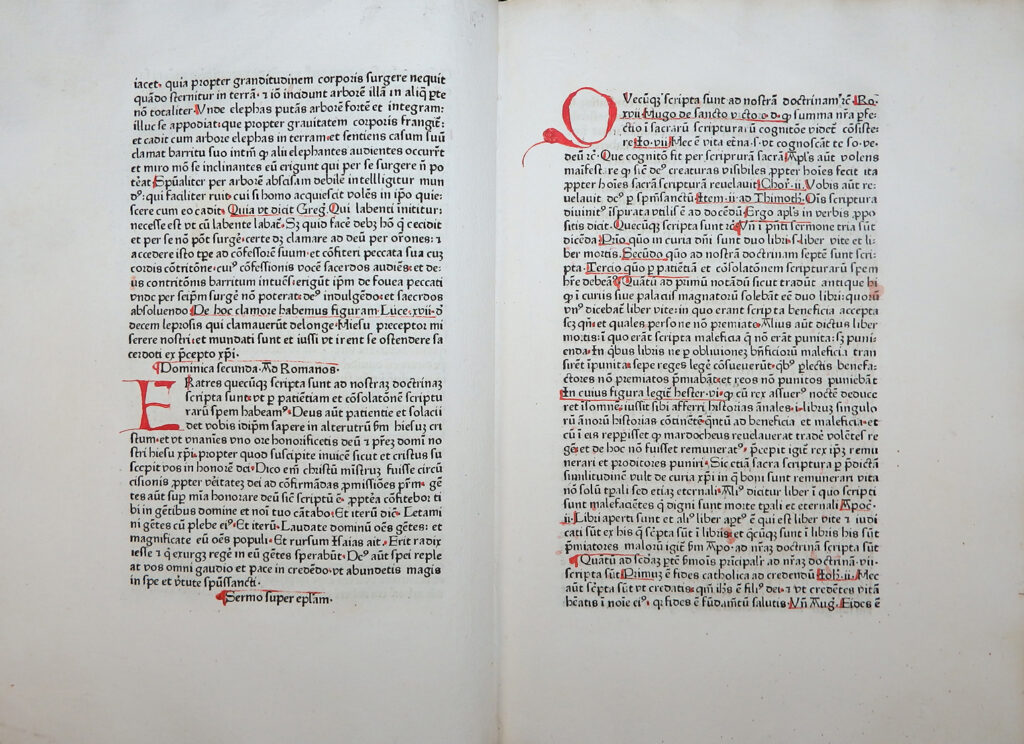 iacet, quia propter granditudinem corporis surgere nequit
quãdo sternitur in terrã· ⁊ iõ incidunt arborẽ illã in aliq̃ pte
nõ totaliter· Unde elephas putãs arborẽ fortẽ et integram:
illuc se appodiat: que propter grauitatem corporis frangit᷑:
et cadit cum arbore elephas in terram· et sentiens casum suũ
clamat barritu suo intm̃ ꝙ alii elephantes audientes occurrt̃
et miro mõ se inclinantes eũ erigunt qui per se surgere ñ po
tẽat· Spũaliter per arborẽ abscisam debilẽ intelligitur mun
dꝰ: qui faciliter ruit· cui si homo acquiescit volẽs in ip̃o quie:
scere cum eo cadit· Quia vt dicit Greg· Qui labenti inititur:
necesse est vt cũ labente labat᷑· Sꝫ quid facẽ debꝫ hõ q̃ cecidit
et per se nõ põt surgẽ: certe dꝫ clamare ad deũ per orones: ⁊
accedere isto tpe ad cõfessorẽ suum· et cõfiteri peccata sua cuꝫ
cordis cõtritõne· cuiꝰ cõfessionis vocẽ sacerdos audiẽs: et de:
us contritõnis barritum intuẽs: erigũt ip̃m de fouea peccati
vnde per seip̃m surgẽ nõ poterat: deꝰ indulgẽdo· et sacerdos
absoluendo· De hoc clamore habemus figuram· Luce· xvii· d̃
decem leprosis qui clamauerũt delonge· Hiesu preceptor mi
serere nostri· et mundati sunt et iussi vt irent se ostendere sa
cerdoti ex p̃cepto xp̃i·
Dominica secunda· Ad Romanos·
FRatres quecũqꝫ scripta sunt ad nostraꝫ doctrinaꝫ
scripta sunt· vt p patientiam et cõsolatõnẽ scriptu
rarũ spem habeamꝰ· Deus autẽ patientie et solacii
det vobis idip̃m sapere in alterutrũ s̃m hiesuꝫ cri
stum· et vt vnanĩes vno ore honorificetis deũ ⁊ pr̃eꝫ domĩ no
stri hiesu xp̃i· propter quod suscipite inuicẽ sicut et cristus su
scepit vos in honorẽ dei· Dico em̃ christũ mĩstruꝫ fuisse circũ
cisionis ꝓpter vẽitatẽ dei ad cõfirmãdas ꝓmissiões pr̃m· gẽ
tes autẽ sup mĩa honorare deũ sic̃ scriptũ ẽ· ꝓptẽa cõfitebor ti
bi in gẽtibus domine et noĩ tuo cãtabo· Et iterũ dic̃· Letami
ni gẽtes cũ plebe eiꝰ· Et iterũ· Laudate dominũ oẽs gẽtes: et
magnificate eũ oẽs populi· Et rursum Isaias ait· Erit radix
iesse ⁊ q̃ exurgꝫ regẽ in eũ gẽtes sperabũt· Deꝰ autẽ spei reple
at vos omni gaudio et pace in credẽdo· vt abundetis magis
in spe et ṽtute sp̃ussancti·
Sermo super ep̃lam·
QVecũqꝫ scripta sunt ad nostrã doctrinam᷑ rc̃· Ro·
xvii· Hugo de sancto victore d· ꝙ summa nr̃a p̃fe
ctio ĩ sacrarũ scripturarũ cognitõe videt᷑ cõsiste:
re· Io· vii· Hec ẽ vita et̃na· s· vt cognoscãt te so· ve·
deũ rc̃· Que cognitõ fit per scripturã sacrã· Apl̃s autẽ volens
maifest·re ꝙ sic̃ deꝰ creaturas visibiles ꝓpter hoĩes fecit ita
ꝓpter hoĩes sacrã scripturã reuelauit· Chor· ii· Vobis autẽ re:
uelauit deꝰ p sp̃msanctũ· Item· ii· ad Thimoth· Oĩs scriptura
diuinitꝰ ĩspirata vtilis ẽ ad docẽdũ· Ergo apl̃s in verbis ꝓpo
sitis dicit· Quecũqꝫ scripta sunt rc̃· Vñ ĩ pñti sermone tria sũt
dicẽda· Prĩo quo in curia dñi sunt duo libri· s· liber vite et li:
ber mortis· Secũdo quo ad nostrã doctrinam septẽ sunt scri:
pta· Tercio quo p patiẽtiã et cõsolatõnem scripturarũ spem
hr̃e debeãꝰ· Quãtũ ad primũ notãdũ sicut tradũt antique hi
ꝙ ĩ curiis siue palacis magnatorũ solebãt eẽ duo libri: quorũ
vnꝰ dicebat᷑ liber vite: in quo erant scripta beneficia accepta
sꝫ qñ: et quales persone nõ premiate· Alius autẽ dictus liber
mortis: ĩ quo erãt scripta maleficia q̃ nõ erãt punita: sꝫ puni:
enda· In qbus libris ne p obluionẽ bñficiorũ maleficia tran
sirẽt ĩpunita· sepe reges legẽ cõsueuerũt· qbꝰ plectis benefa:
ctores nõ premiatos p̃miabãt· et reos nõ punitos puniebãt
In cuius figura legit᷑ hester· vi· ꝙ cũ rex assuerꝰ noctẽ duceret
ret ĩsomnẽ· iussit sibi afferri historias ãnales· i· libruꝫ singulo
rũ ãnorũ historias continẽtẽ· qñtũ ad beneficia et maleficia· et
cũ ĩ eis reppisset ꝙ mardocheus reuelauerat tradẽ volẽtes re
gẽ· et de hoc nõ fuisset remuneratꝰ· p̃cepit igit᷑ rex ip̃ꝫ remu
nerari et proditores puniri· Sic etiã sacra scriptura p p̃dictã
similitudinẽ vult de curia xp̃i in q̃ boni sunt remunerari vita
nõ solũ tp̃ali sed etiaꝫ eternali· Aliꝰ dicitur liber ĩ quo scripti
sunt malefaciẽtes q̃ digni sunt morte tp̃ali et eternali· Apoc̃·
ii· Libri aperti sunt et aliꝰ liber aptꝰ ẽ qui est liber vite ⁊ iudi
cati sũt ex his q̃ sc̃pta sũt ĩ libris· et q̃cũqꝫ sunt ĩ libris his sũt
p̃miatores malorũ igit᷑ s̃m Apo· ad nr̃aꝫ doctrinã sc̃ripta sũt
Quãtũ ad sc̃daꝫ p̃tẽ s̃mois principalr̃ ad nr̃aꝫ doctrinã· vii·
scripta sũt· Primuꝫ ẽ fides catholica ad credendũ· Ioh· ii· Hec
autẽ sc̃pta sũt vt credatis· qm̃ ih̃s ẽ filiꝰ dei· ⁊ vt credẽtes vitã
hẽatis ĩ noĩe eiꝰ· qꝛ fides ẽ fũdam̃tũ salutis· Vñ Aug̃· Fides ẽ